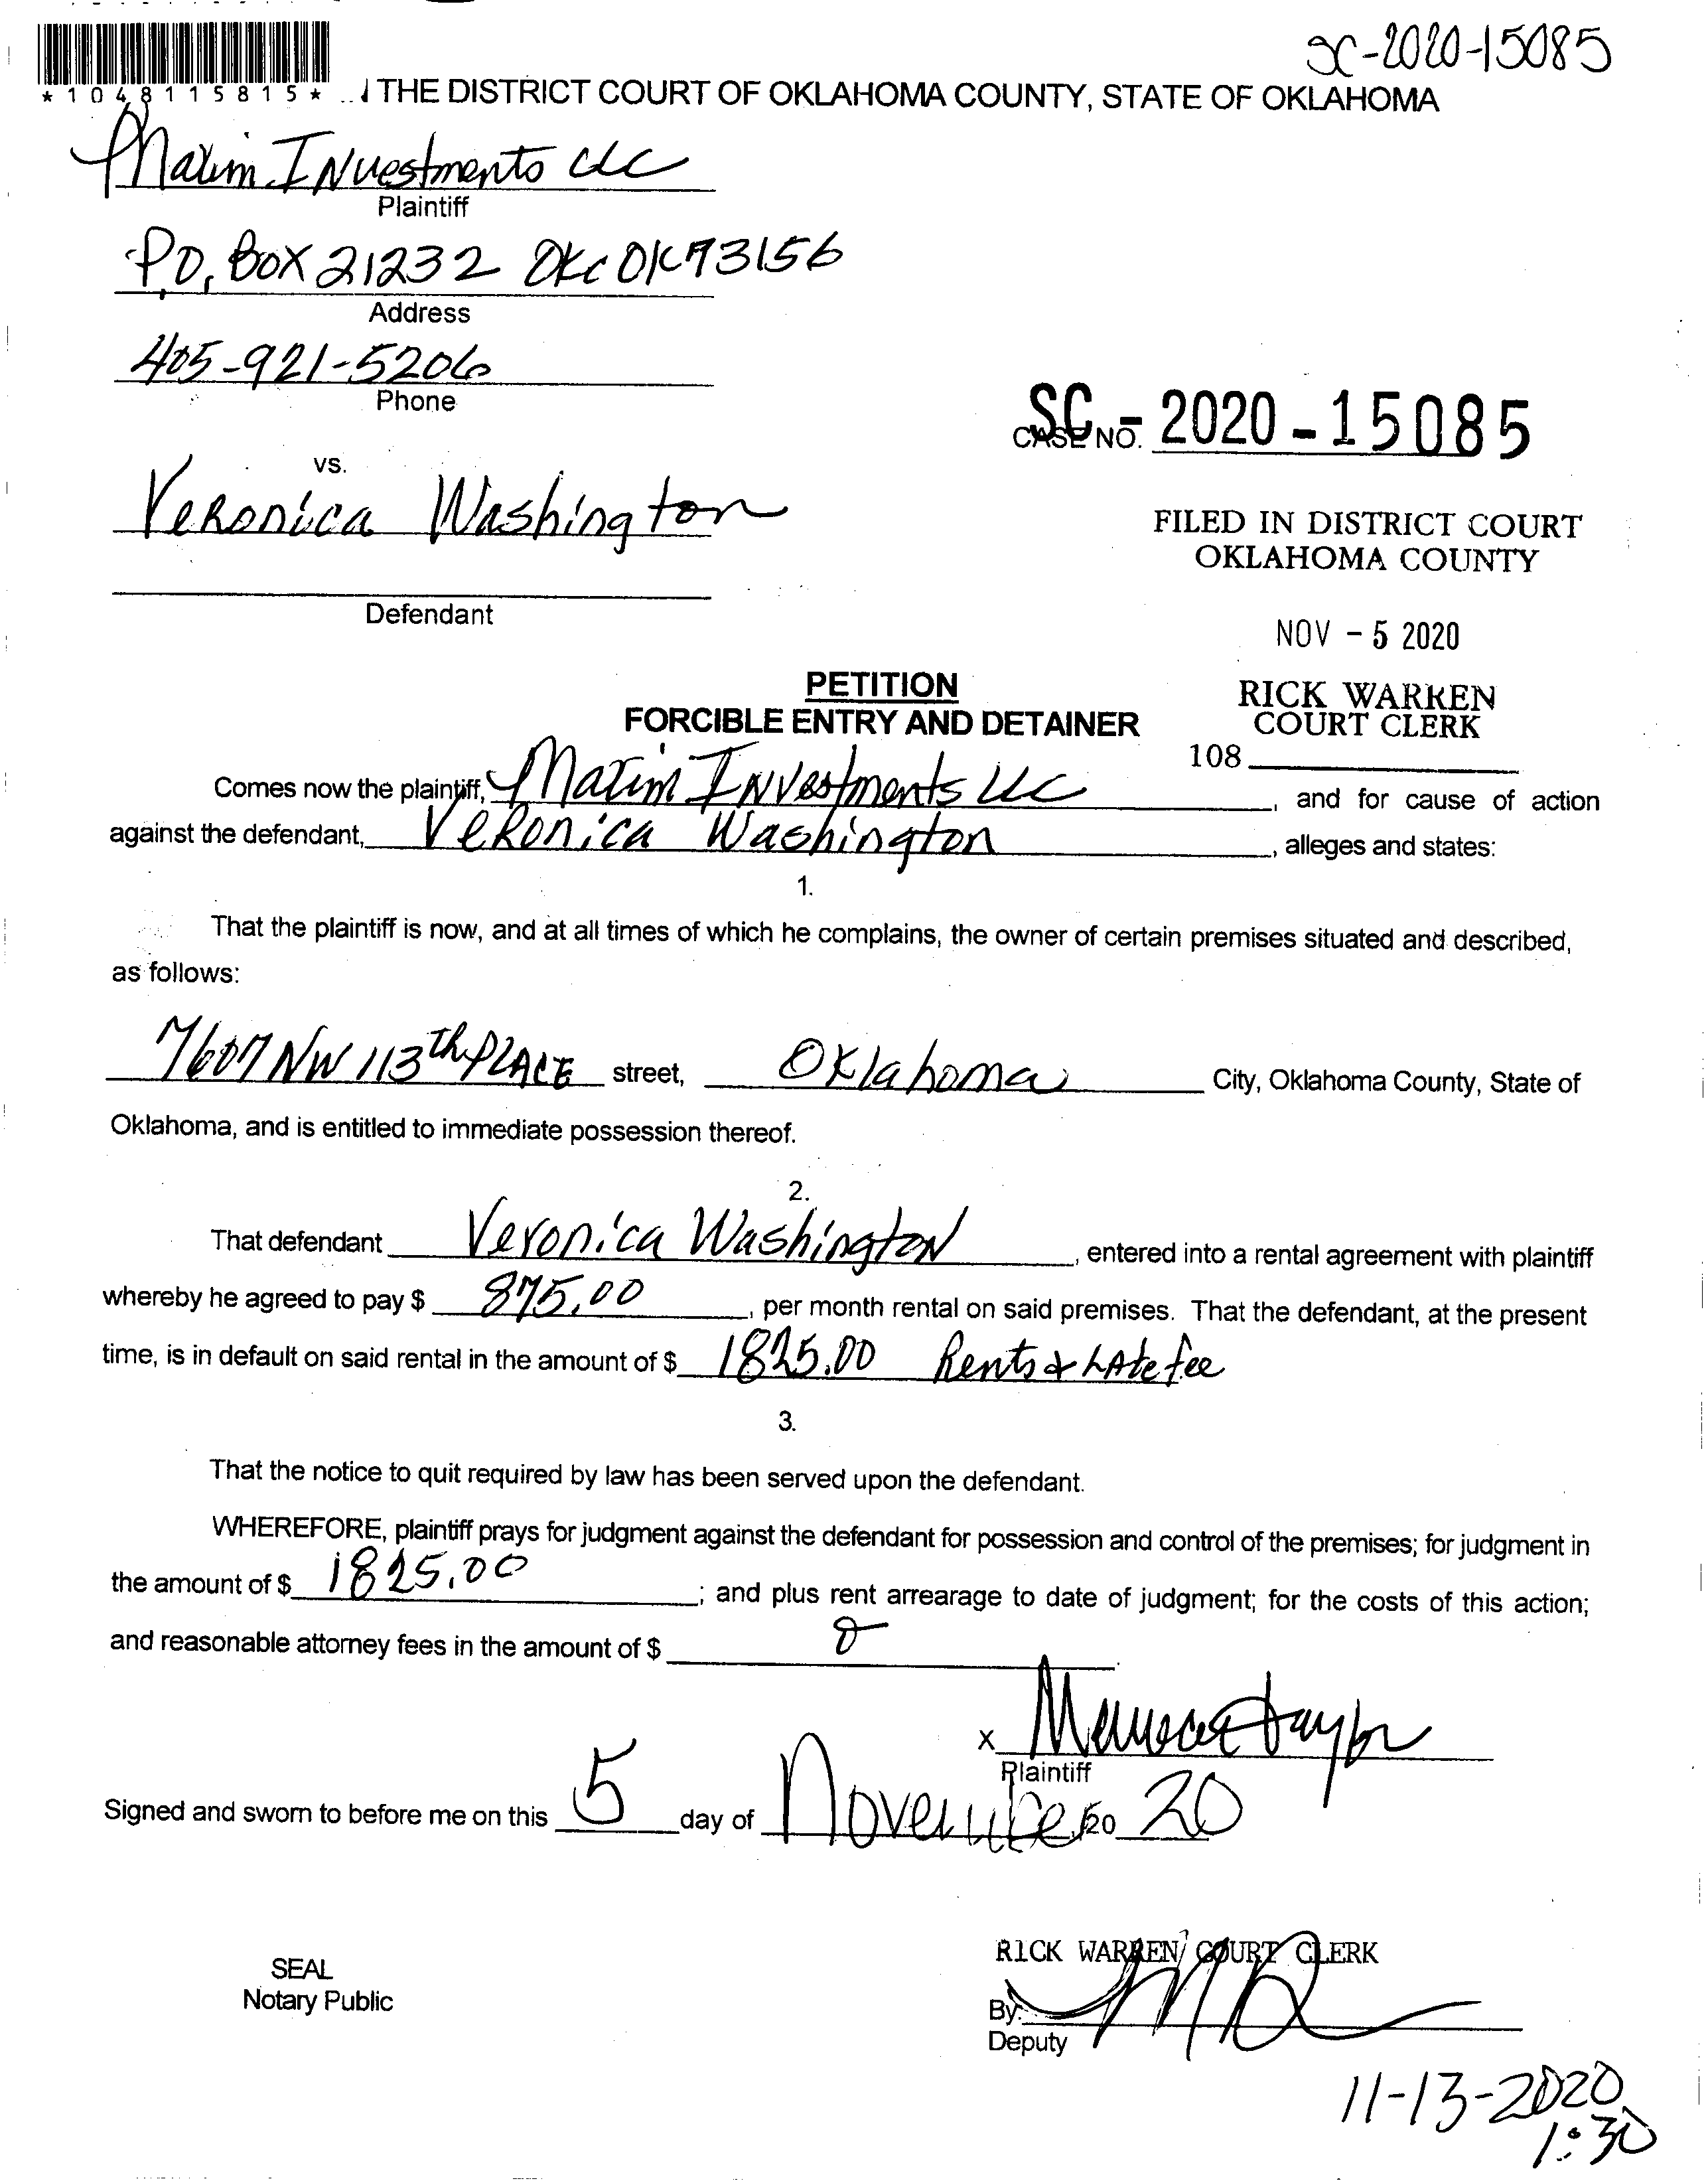 SC-2020-15085
*1048115815*
THE DISTRICT COURT OF OKLAHOMA COUNTY, STATE OF OKLAHOMA
Maxim Investments LLC
Plaintiff
P.O. Box 21232 OKC OK 73156
Address
405-921-5206
Phone
CASE NO. SC-2020-15085
vs.
Veronica Washington
Defendant
FILED IN DISTRICT COURT
OKLAHOMA COUNTY
NOV - 5 2020
RICK WARREN
COURT CLERK
108
PETITION
FORCIBLE ENTRY AND DETAINER
Comes now the plaintiff, Maxim Investments LLC, and for cause of action
against the defendant, Veronica Washington, alleges and states:
1.
That the plaintiff is now, and at all times of which he complains, the owner of certain premises situated and described,
as follows:
7607 NW 113th PLACE street, Oklahoma City, Oklahoma County, State of
Oklahoma, and is entitled to immediate possession thereof.
2.
That defendant Veronica Washington, entered into a rental agreement with plaintiff
whereby he agreed to pay $ 875.00, per month rental on said premises. That the defendant, at the present
time, is in default on said rental in the amount of $ 1825.00 Rents & Late fee
3.
That the notice to quit required by law has been served upon the defendant.
WHEREFORE, plaintiff prays for judgment against the defendant for possession and control of the premises; for judgment in
the amount of $ 1825.00; and plus rent arrearage to date of judgment; for the costs of this action;
and reasonable attorney fees in the amount of $ 0.
X Taylor
Plaintiff
Signed and sworn to before me on this 5 day of November, 20 20
SEAL
Notary Public
RICK WARREN COURT CLERK
By:
Deputy
11-13-2020
1:30